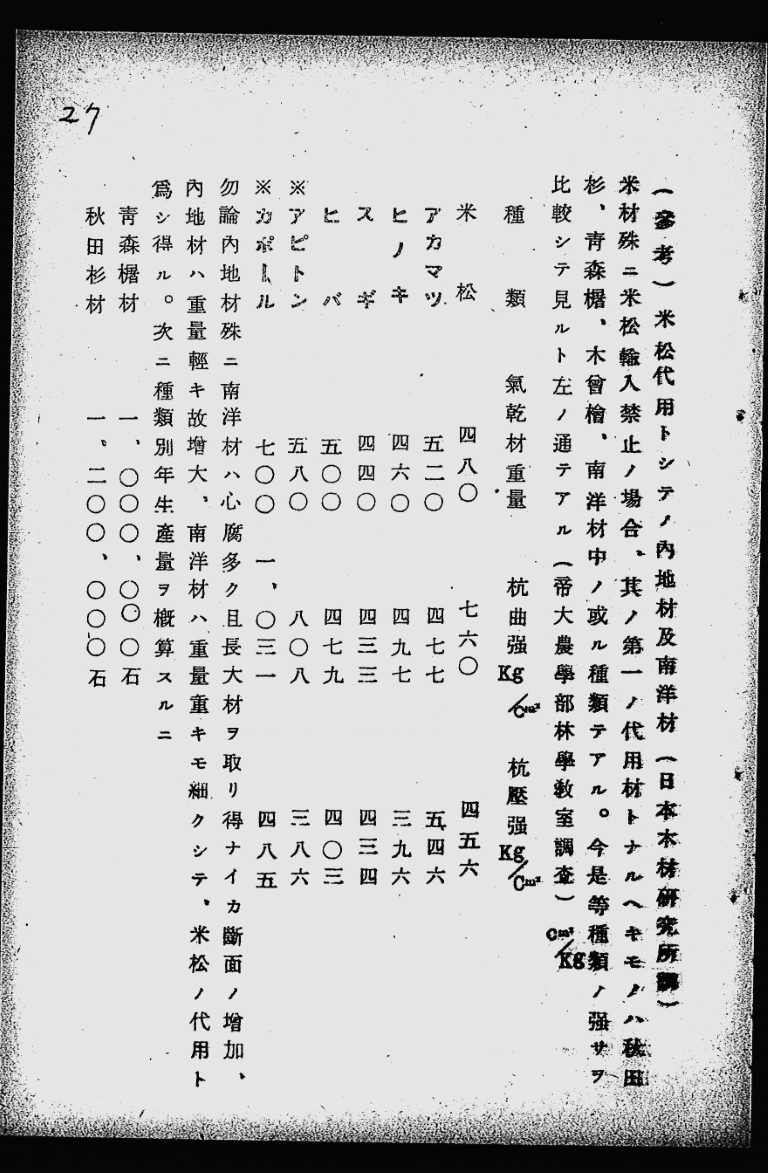 27
(參考) 米松代用トシテノ內地材及南洋材 (日本木材硏究所調)
米材殊ニ米松輸入禁止ノ場合、其ノ第一ノ代用材トナルヘキモノハ秋田
杉、靑森橳、木曾檜、南洋材中ノ或ル種類テアル。今是等種類ノ强サヲ
比較シテ見ルト左ノ通テアル (帝大農學部林學敎室調查) Cm²/Kg
種類 氣乾材重量 杭曲强Kg/Cm² 杭壓强Kg/Cm²
米松 四八〇 七六〇 四五六
アカマツ 五二〇 四七七 五四六
ヒノキ 四六〇 四九七 三九六
スギ 四四〇 四三三 四三四
ヒバ 五〇〇 四七九 四〇三
※アピトン 五八〇 八〇八 三八六
※カポール 七〇〇 一、〇三一 四八五
勿論內地材殊ニ南洋材ハ心腐多ク且長大材ヲ取リ得ナイカ斷面ノ增加、
內地材ハ重量輕キ故增大、南洋材ハ重量重キモ細クシテ、米松ノ代用ト
爲シ得ル。次ニ種類別年生產量ヲ槪算スルニ
靑森橳材 一、〇〇〇、〇〇〇石
秋田杉材 一、二〇〇、〇〇〇石